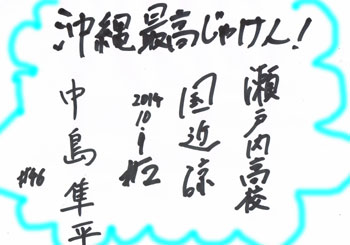 沖縄最高じゃけん!
瀬戸内高校
国近涼
#2
2014.10.9
中島隼平
#46